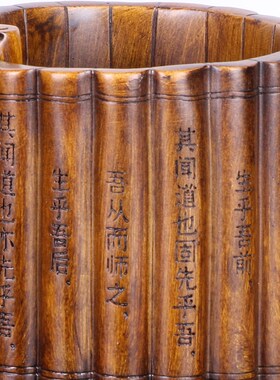 生乎吾前，
其闻道也固先乎吾，
吾从而师之，
生乎吾后，
其闻道也亦先乎吾，